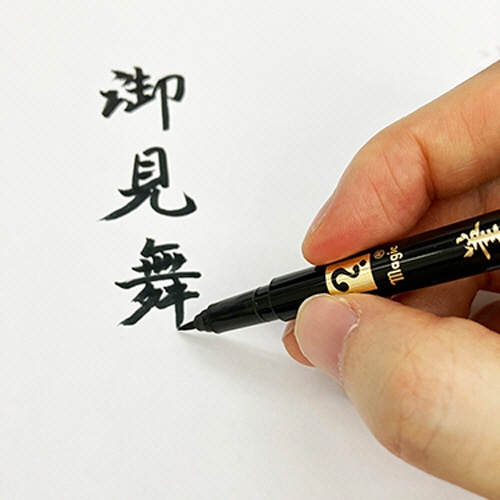 御見舞
?®
Magic
筆